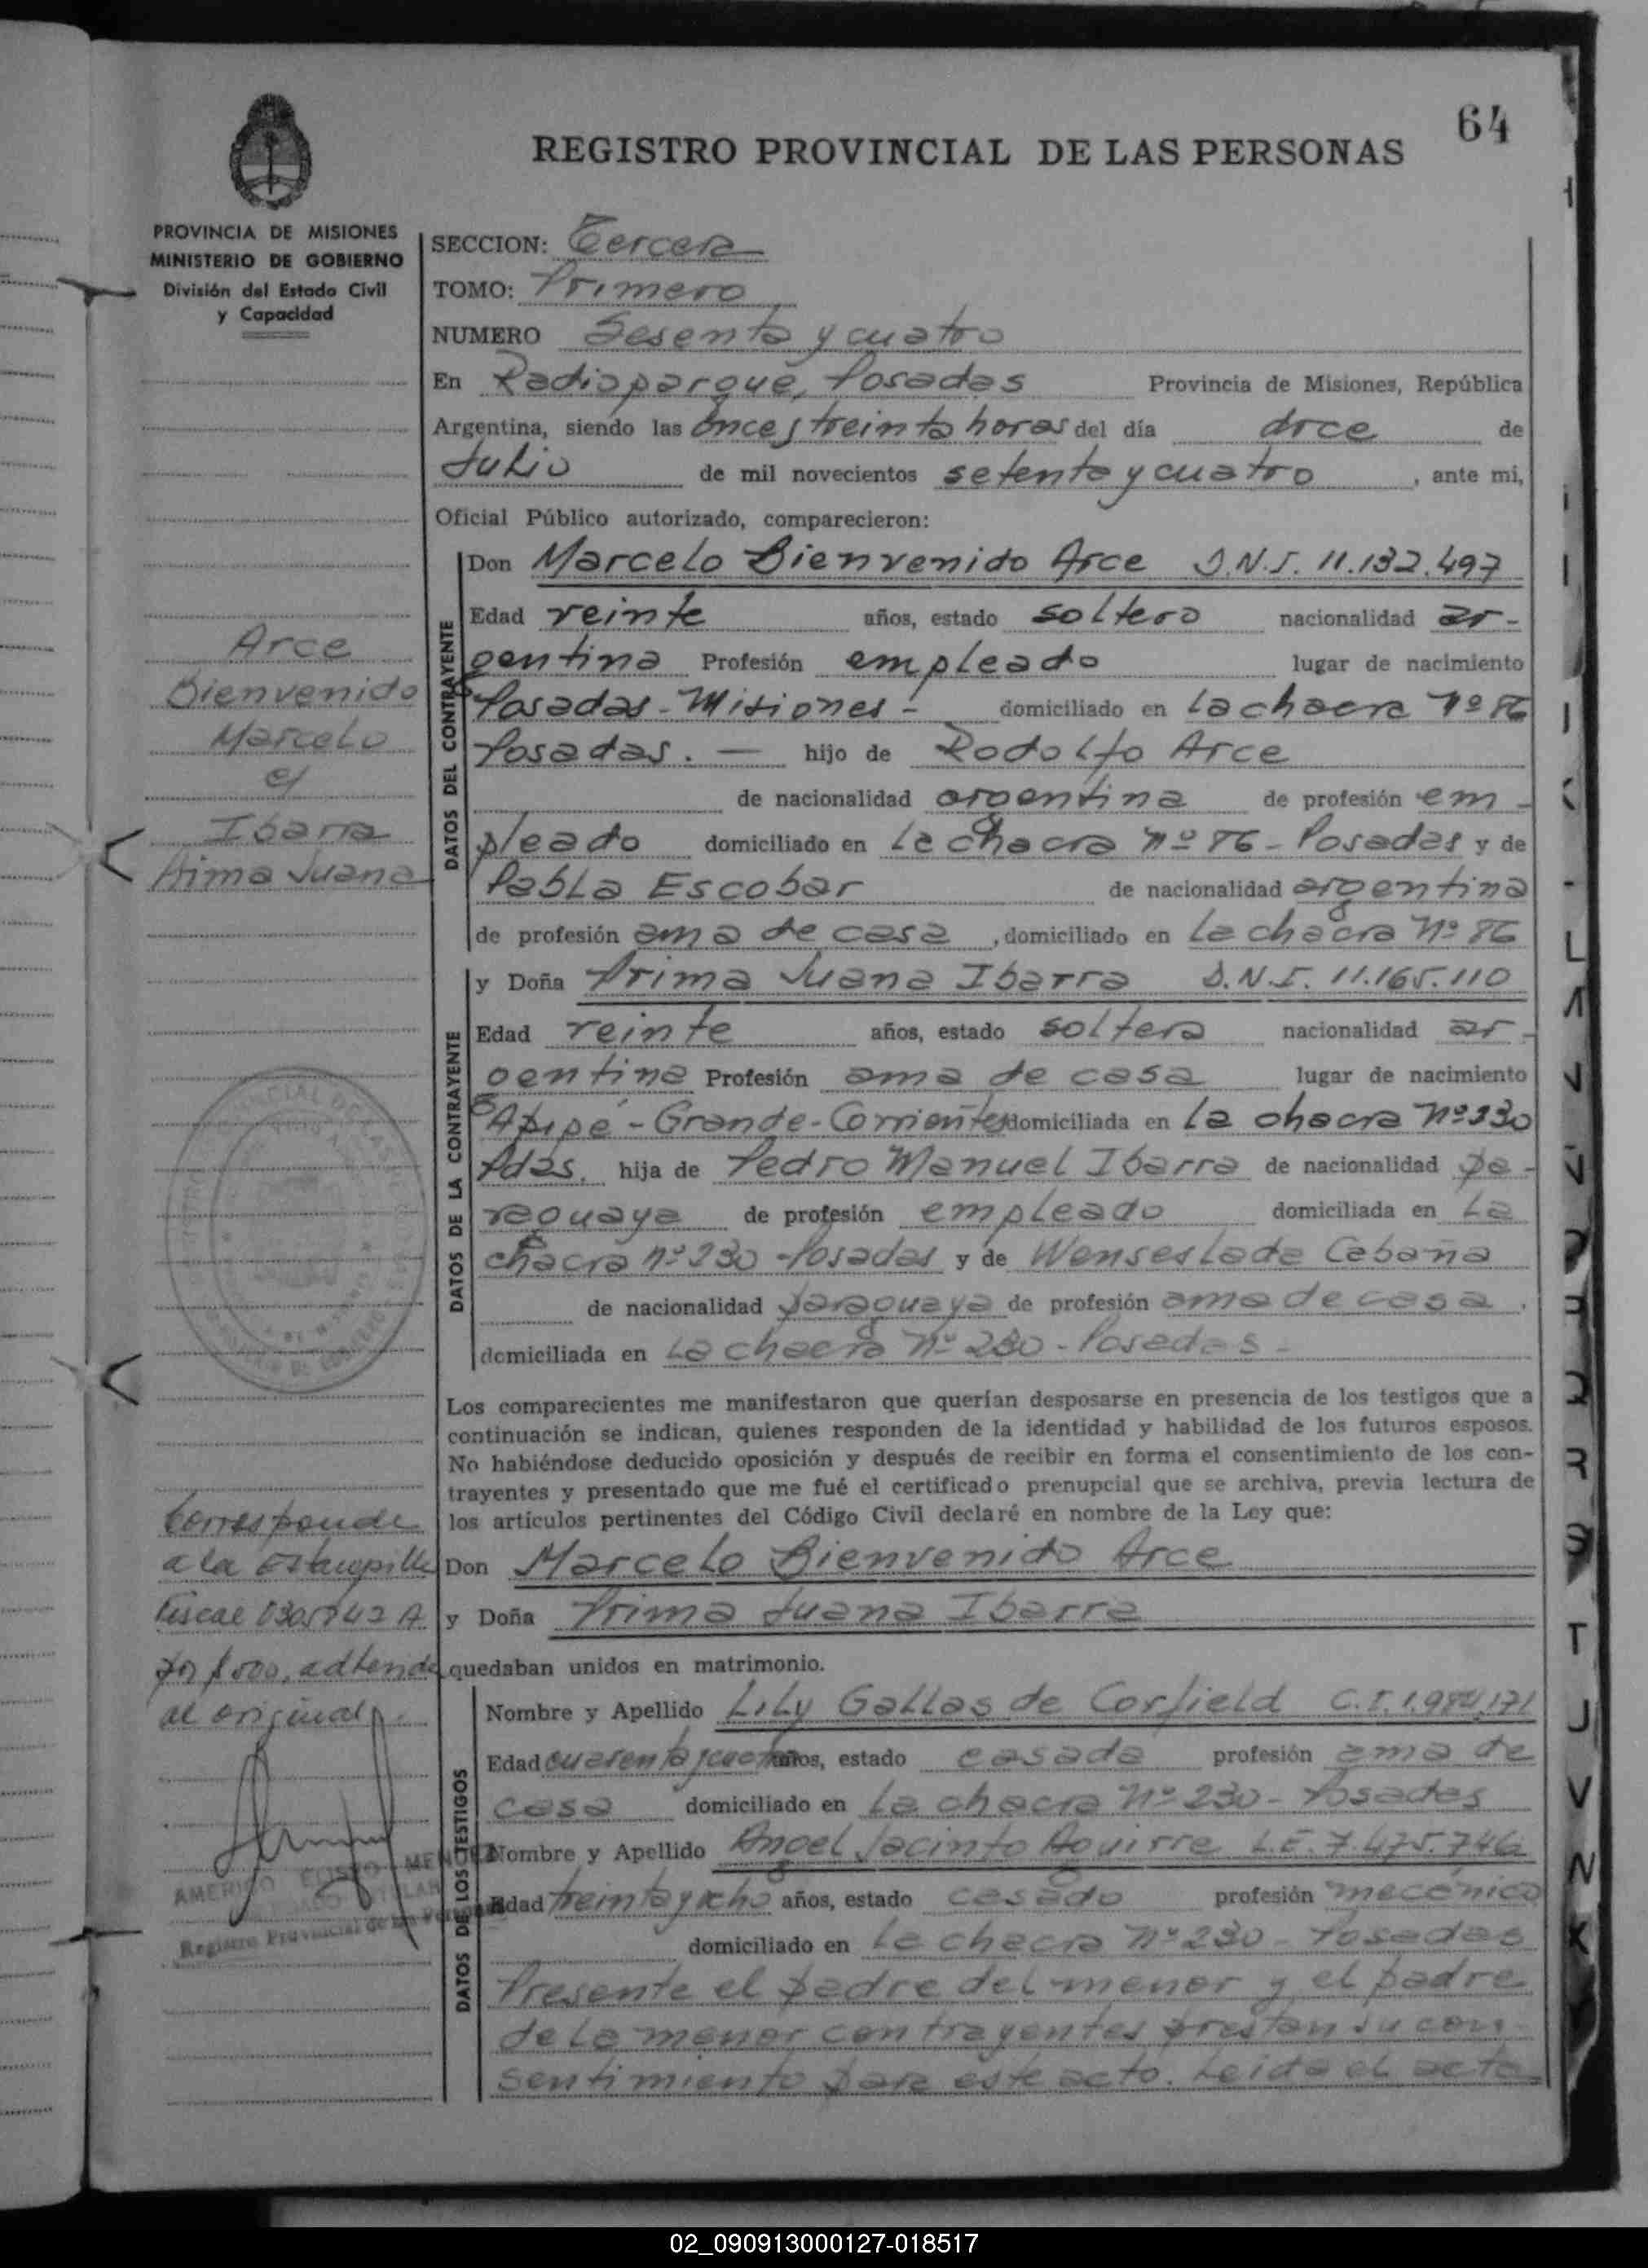 64
REGISTRO PROVINCIAL DE LAS PERSONAS
PROVINCIA DE MISIONES
MINISTERIO DE GOBIERNO
División del Estado Civil
y Capacidad
SECCION: Tercera
TOMO: Primero
NUMERO Sesenta y cuatro
En Radioparque, Posadas Provincia de Misiones, República
Argentina, siendo las once y treinta horas del día doce de
Julio de mil novecientos setenta y cuatro, ante mi,
Oficial Público autorizado, comparecieron:
DATOS DEL CONTRAYENTE
Don Marcelo Bienvenido Arce D.N.I. 11.132.497
Edad veinte años, estado soltero nacionalidad ar-
gentina Profesión empleado lugar de nacimiento
Posadas - Misiones - domiciliado en la chacra Nº 86
Posadas. — hijo de Rodolfo Arce
de nacionalidad argentina de profesión em-
pleado domiciliado en la chacra nº 86 - Posadas y de
Pabla Escobar de nacionalidad argentina
de profesión ama de casa, domiciliado en la chacra Nº 86
Arce
Bienvenido
Marcelo
c/
Ibarra
Juana
DATOS DE LA CONTRAYENTE
y Doña Prima Juana Ibarra D.N.I. 11.165.110
Edad veinte años, estado soltera nacionalidad ar-
gentina Profesión ama de casa lugar de nacimiento
Apipé - Grande - Corrientes domiciliada en la chacra Nº 230
Pdas. hija de Pedro Manuel Ibarra de nacionalidad pa-
raguaya de profesión empleado domiciliada en La
chacra nº 230 - Posadas y de Wenseslada Cabaña
de nacionalidad paraguaya de profesión ama de casa.
domiciliada en La chacra nº 230 - Posadas -
Los comparecientes me manifestaron que querían desposarse en presencia de los testigos que a
continuación se indican, quienes responden de la identidad y habilidad de los futuros esposos.
No habiéndose deducido oposición y después de recibir en forma el consentimiento de los con-
trayentes y presentado que me fué el certificado prenupcial que se archiva, previa lectura de
los artículos pertinentes del Código Civil declaré en nombre de la Ley que:
Don Marcelo Bienvenido Arce
y Doña Prima Juana Ibarra
quedaban unidos en matrimonio.
Corresponde
a la Estampilla
Fiscal
adherida
al original
DATOS DE LOS TESTIGOS
Nombre y Apellido Lily Gallas de Corfield C.I. 1.984.171
Edad cuarenta y años, estado casada profesión ama de
casa domiciliado en la chacra nº 230 - Posadas
Nombre y Apellido Angel Jacinto Aguirre L.E. 7.475.746
Edad treinta y ocho años, estado casado profesión mecánico
domiciliado en la chacra nº 230 - Posadas
Presente el padre del menor y el padre
de la menor contrayentes prestan su con-
sentimiento para este acto. Leida el acta
Registro Provincial de las Personas
02_090913000127-018517